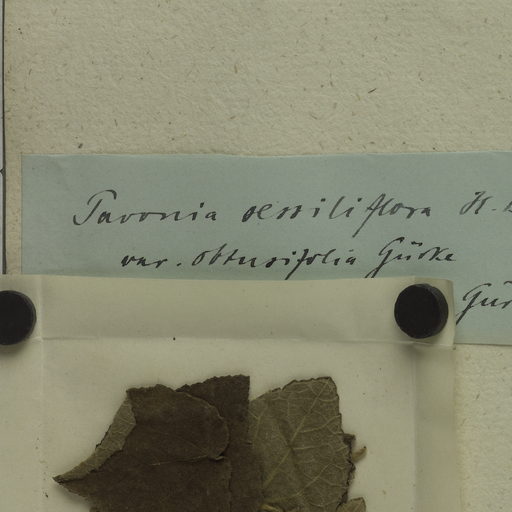 Pavonia sessiliflora H.
var. obtusifolia Gürke
Gür